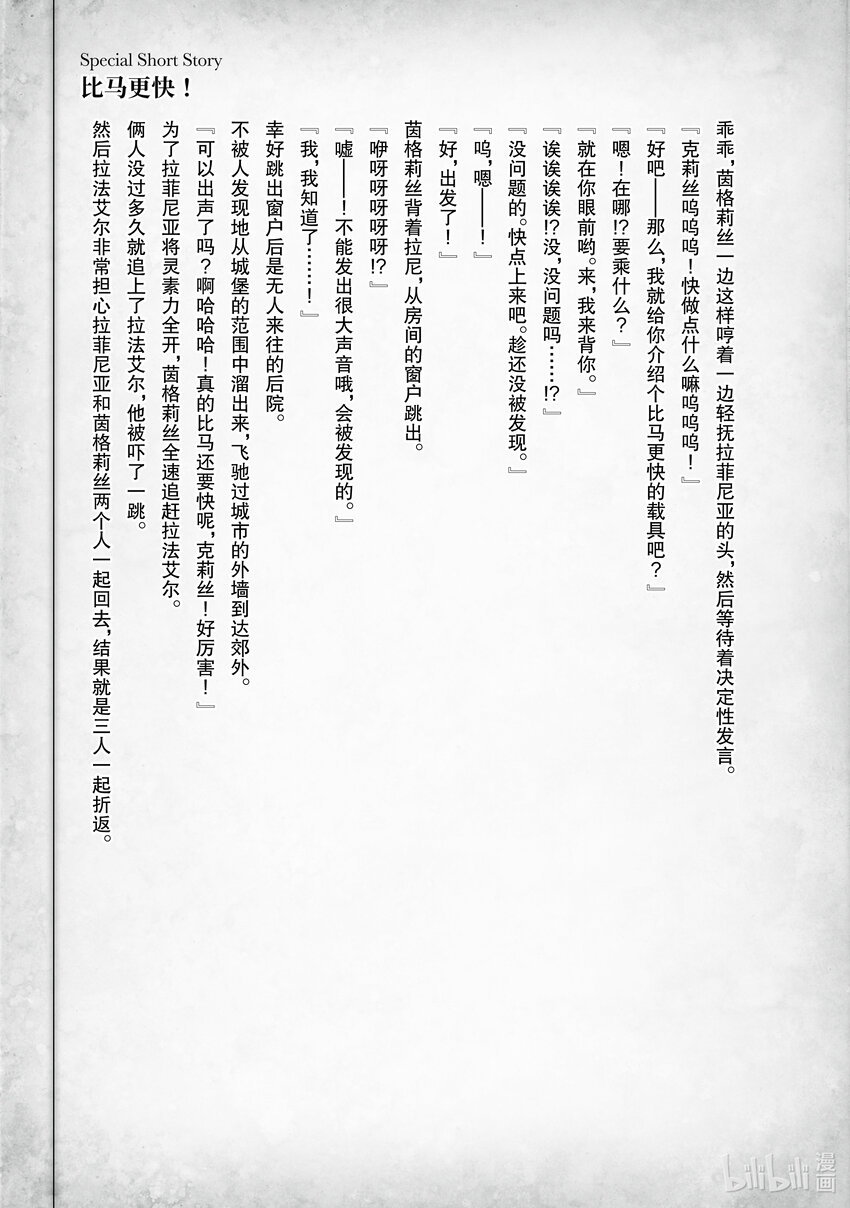 Special Short Story
比马更快！
乖乖，茵格莉丝一边这样哼着一边轻抚拉菲尼亚的头，然后等待着决定性发言。
『克莉丝呜呜呜！快做点什么嘛呜呜呜！』
『好吧——那么，我就给你介绍个比马更快的载具吧？』
『嗯！在哪!?要乘什么？』
『就在你眼前哟。来，我来背你。』
『诶诶诶诶!?没，没问题吗……!?』
『没问题的。快点上来吧。趁还没被发现。』
『呜，嗯——！』
『好，出发了！』
茵格莉丝背着拉尼，从房间的窗户跳出。
『咿呀呀呀呀呀!?』
『嘘——！不能发出很大声音哦，会被发现的。』
『我，我知道了……！』
幸好跳出窗户后是无人来往的后院。
不被人发现地从城堡的范围中溜出来，飞驰过城市的外墙到达郊外。
『可以出声了吗？啊哈哈哈！真的比马还要快呢，克莉丝！好厉害！』
为了拉菲尼亚将灵素力全开，茵格莉丝全速追赶拉法艾尔。
俩人没过多久就追上了拉法艾尔，他被吓了一跳。
然后拉法艾尔非常担心拉菲尼亚和茵格莉丝两个人一起回去，结果就是三人一起折返。
bilibili
漫画